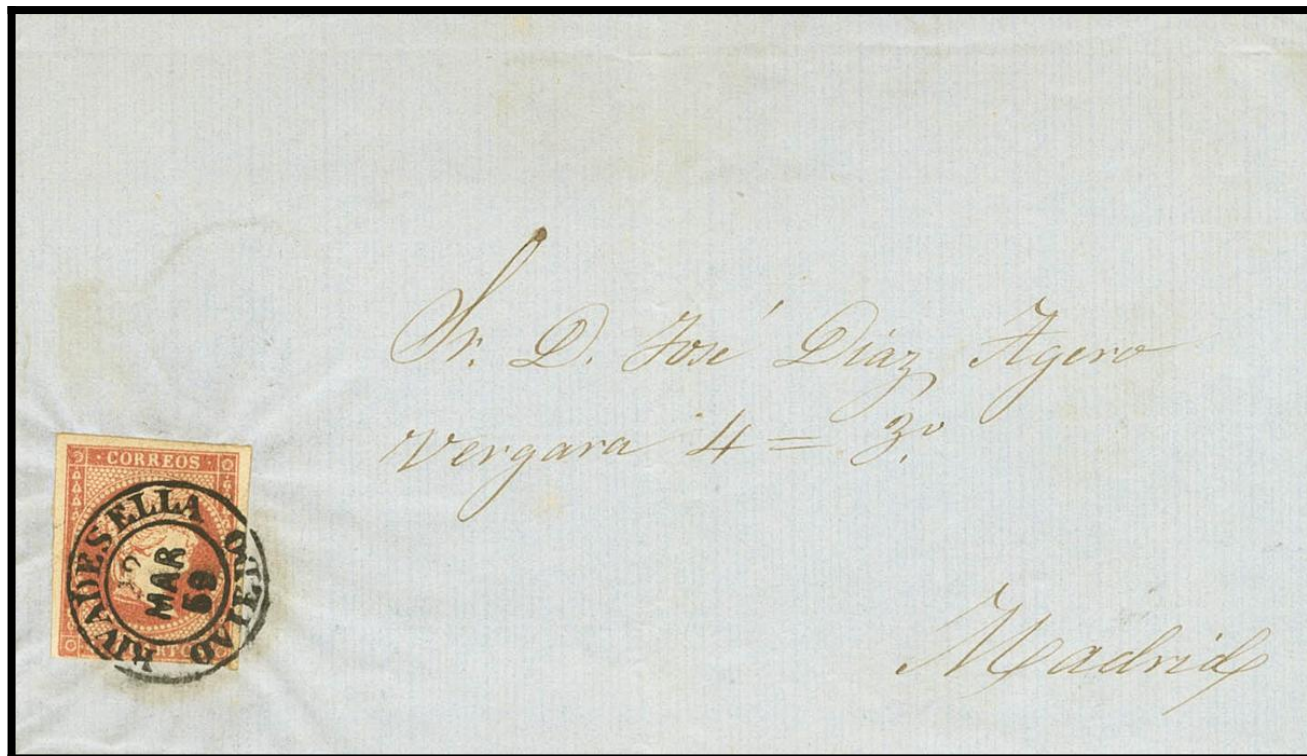 Sr. D. José Díaz Agero
Vergara 4 = 3º
Madrid
CORREOS
RIVADESELLA
OVIEDO
MAR
59